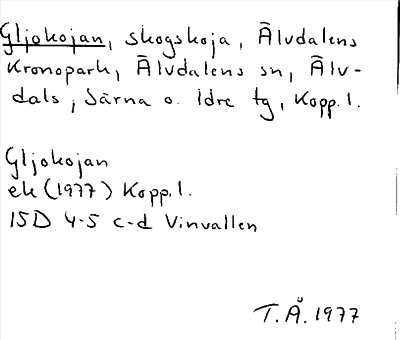 Gljokojan, skogskoja, Älvdalens
Kronopark, Älvdalens sn, Älv-
dals, Särna o. Idre tg, Kopp. l.
Gljokojan
ek (1977) Kopp. l.
15D 4-5 c-d Vinvallen
T. Å. 1977